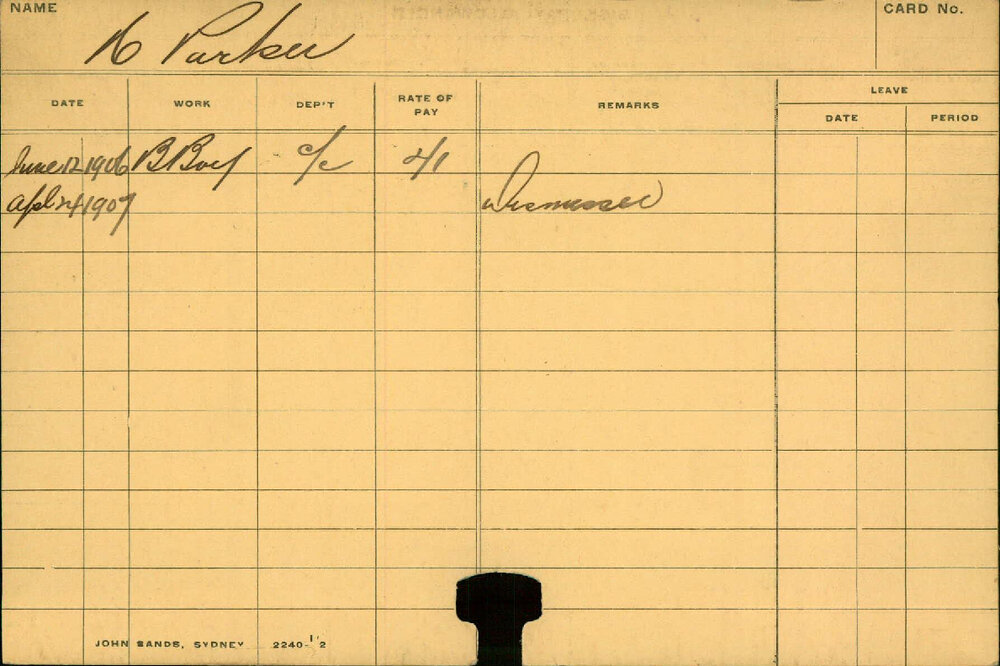 NAME
CARD No.
H Parker
DATE WORK DEP'T RATE OF PAY REMARKS LEAVE
DATE PERIOD
June 12 1906 B Boy c/c 4/1
Apl 24 1907 Dismissed
JOHN SANDS, SYDNEY 2240-1'2